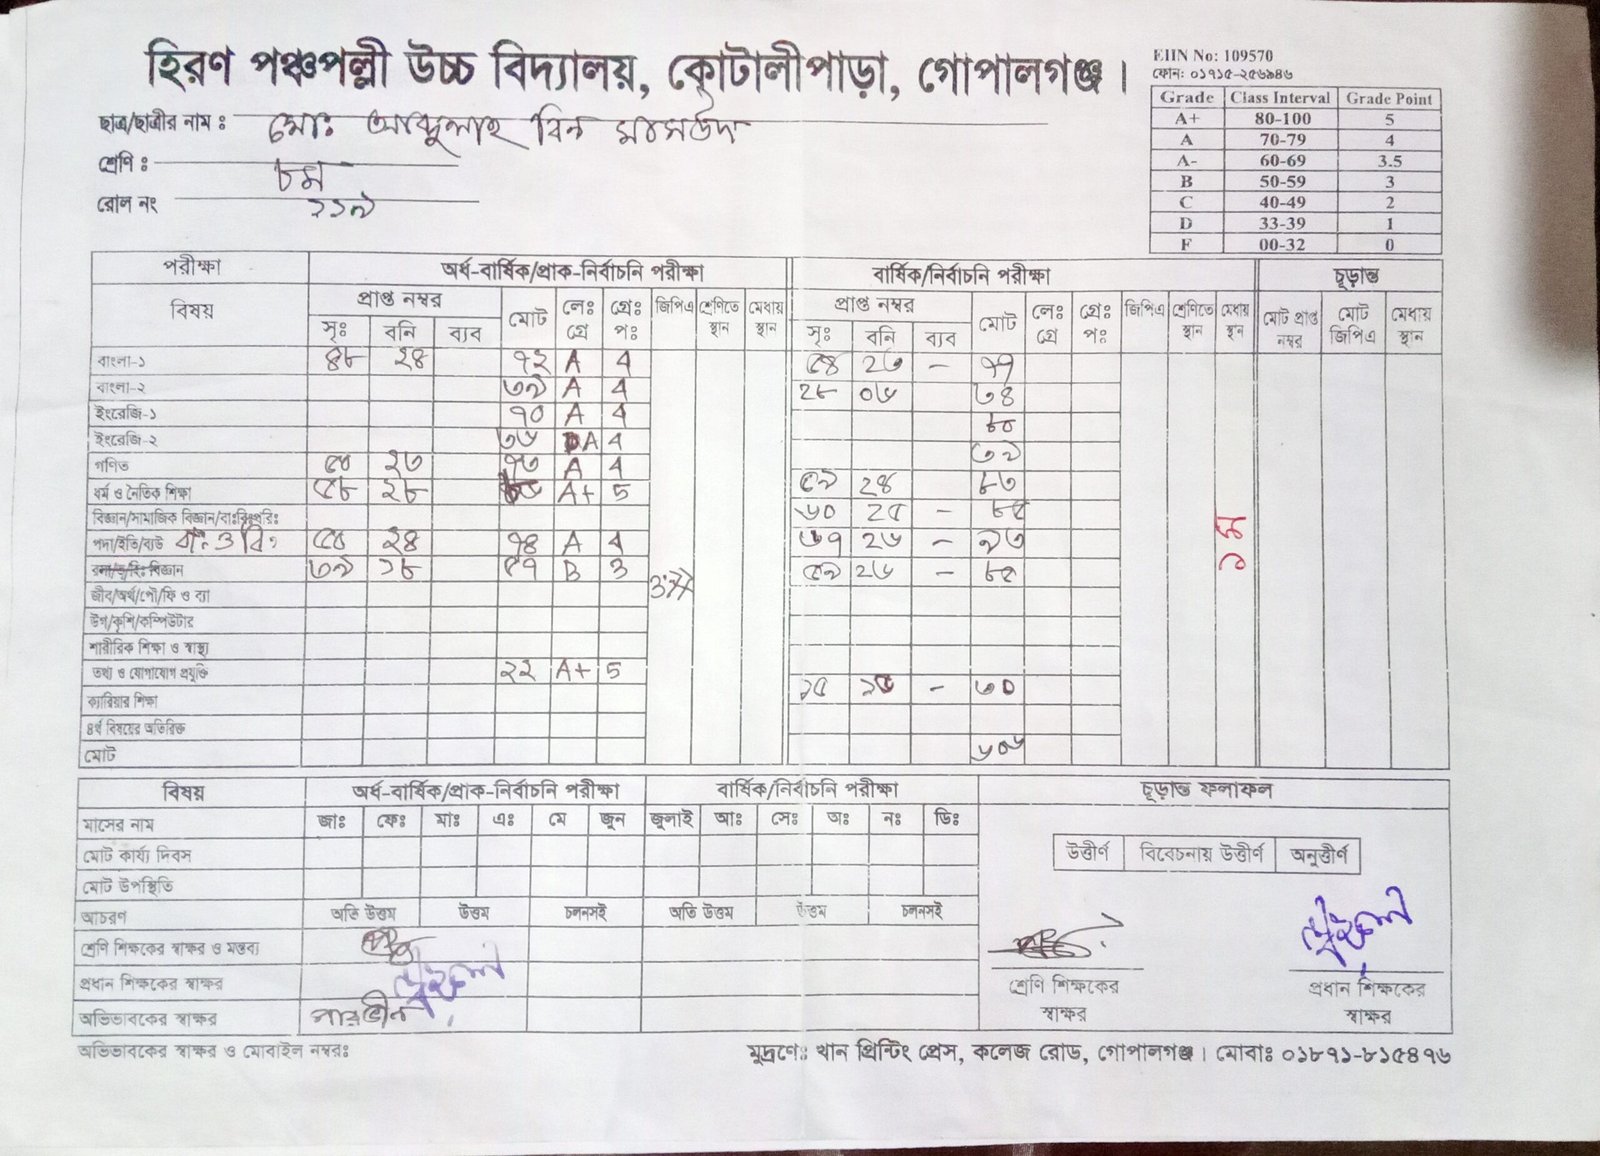 হিরণ পঞ্চপল্লী উচ্চ বিদ্যালয়, কোটালীপাড়া, গোপালগঞ্জ।
EIIN No: 109570
ফোন: ০১৭১৫-২৫৬৯৪৬
Grade Class Interval Grade Point
A+ 80-100 5
A 70-79 4
A- 60-69 3.5
B 50-59 3
C 40-49 2
D 33-39 1
F 00-32 0
ছাত্র/ছাত্রীর নাম : মোঃ আব্দুল্লাহ বিন মাসউদ
শ্রেণি : ৮ম
রোল নং ১১৯
পরীক্ষা অর্ধ-বার্ষিক/প্রাক-নির্বাচনি পরীক্ষা বার্ষিক/নির্বাচনি পরীক্ষা চূড়ান্ত
বিষয় প্রাপ্ত নম্বর মোট লেঃ গ্রে গ্রেঃ পঃ জিপিএ শ্রেণিতে স্থান মেধায় স্থান প্রাপ্ত নম্বর মোট লেঃ গ্রে গ্রেঃ পঃ জিপিএ শ্রেণিতে স্থান মেধায় স্থান মোট প্রাপ্ত নম্বর মোট জিপিএ মেধায় স্থান
সৃঃ বনি ব্যব সৃঃ বনি ব্যব
বাংলা-১ ৪৮ ২৪ ৭২ A 4 ৫৪ ২৩ – ৭৭
বাংলা-২ ৩৯ A 4 ২৮ ০৬ ৩৪
ইংরেজি-১ ৭০ A 4 ৮০
ইংরেজি-২ ৩৬ A 4 ৩৯
গণিত ৫০ ২৩ ৭৩ A 4 ৫৯ ২৪ ৮৩
ধর্ম ও নৈতিক শিক্ষা ৫৮ ২৮ A+ 5 ৬০ ২৫ – ৮৫
বিজ্ঞান/সামাজিক বিজ্ঞান/বাঃবিঃপরিঃ
পদা/ইতি/ব্যউ বাং ও বিঃ ৫০ ২৪ ৭৪ A 4 ৬৭ ২৬ – ৯৩
বিজ্ঞান ৩৯ ১৮ ৫৭ B 3 ৫৯ ২৬ – ৮৫
3.77
১ম
জীব/অর্থ/পৌ/ফি ও ব্যা
উগ/কৃশি/কম্পিউটার
শারীরিক শিক্ষা ও স্বাস্থ্য
তথ্য ও যোগাযোগ প্রযুক্তি ২২ A+ 5 ১৫ ১৫ – ৩০
ক্যারিয়ার শিক্ষা
৪র্থ বিষয়ের অতিরিক্ত
মোট ৬৮৬
বিষয় অর্ধ-বার্ষিক/প্রাক-নির্বাচনি পরীক্ষা বার্ষিক/নির্বাচনি পরীক্ষা চূড়ান্ত ফলাফল
মাসের নাম জাঃ ফেঃ মাঃ এঃ মে জুন জুলাই আঃ সেঃ অঃ নঃ ডিঃ
মোট কার্য্য দিবস
উত্তীর্ণ বিবেচনায় উত্তীর্ণ অনুত্তীর্ণ
মোট উপস্থিতি
আচরণ অতি উত্তম উত্তম চলনসই অতি উত্তম উত্তম চলনসই
শ্রেণি শিক্ষকের স্বাক্ষর ও মন্তব্য
প্রধান শিক্ষকের স্বাক্ষর
শ্রেণি শিক্ষকের স্বাক্ষর
প্রধান শিক্ষকের স্বাক্ষর
অভিভাবকের স্বাক্ষর পারভীন
অভিভাবকের স্বাক্ষর ও মোবাইল নম্বরঃ
মুদ্রণে: খান প্রিন্টিং প্রেস, কলেজ রোড, গোপালগঞ্জ। মোবাঃ ০১৮৭১-৮১৫৪৭৬